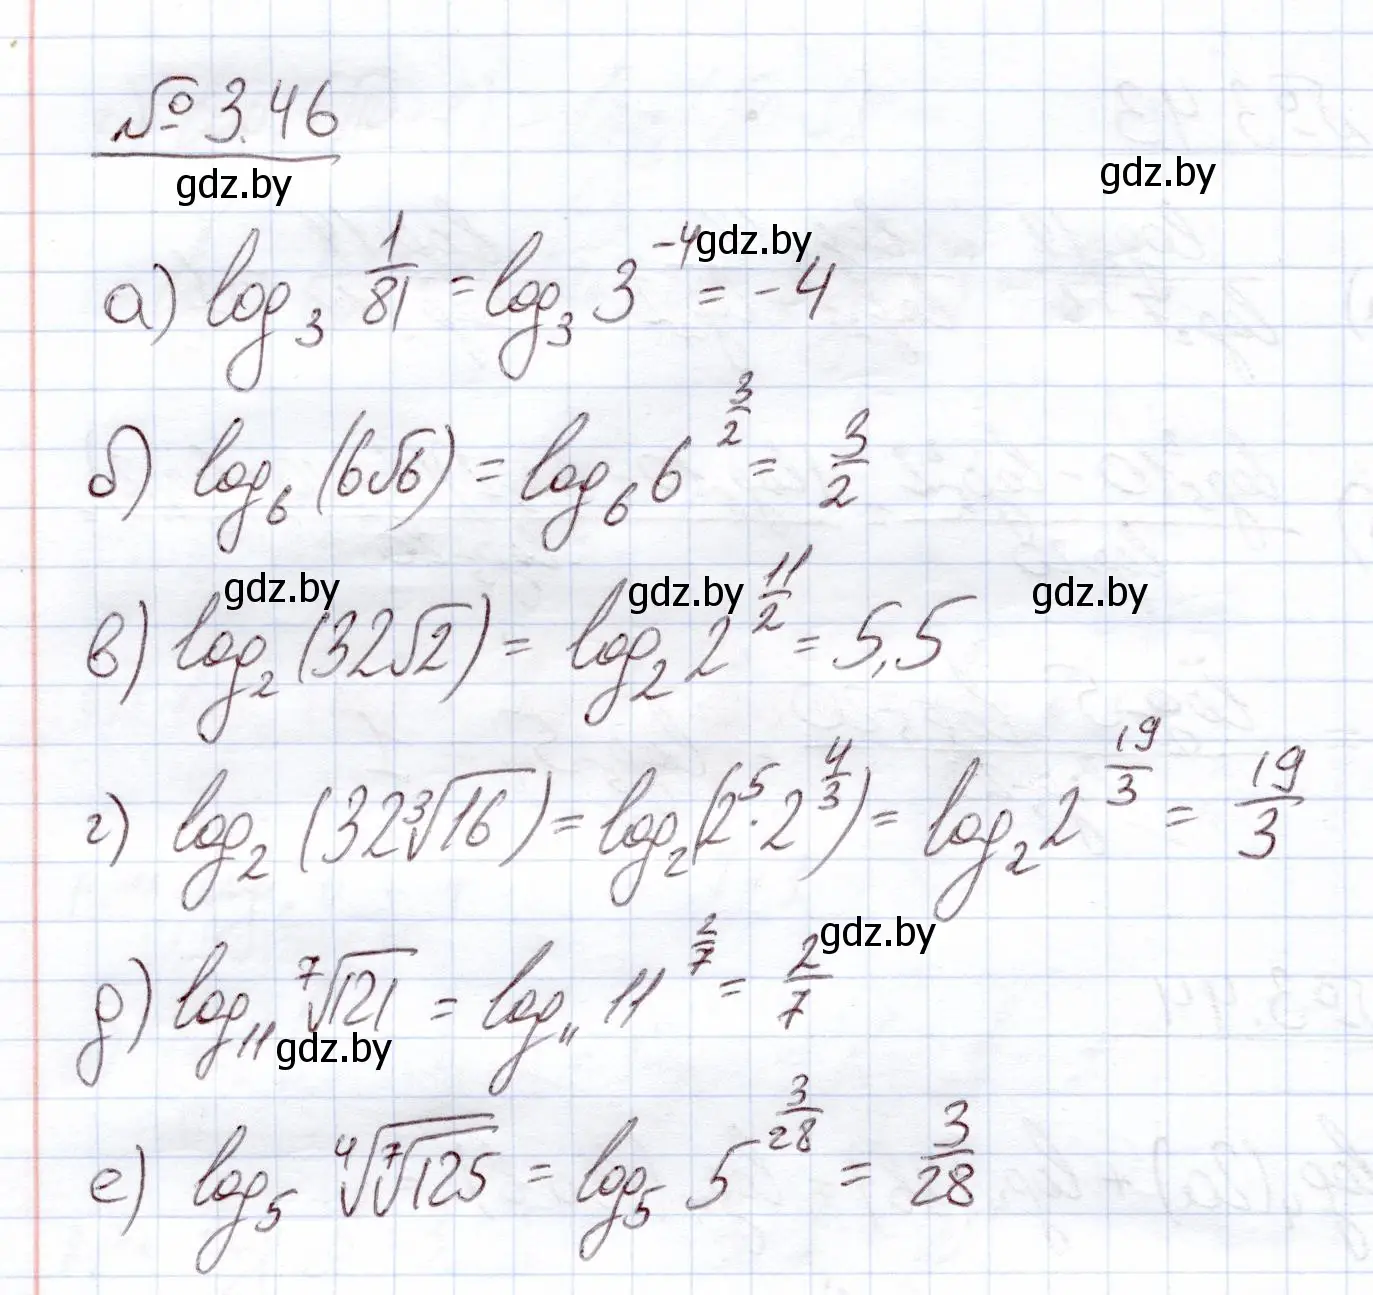 № 3.46
gdz.by gdz.by
gdz.by
а) log₃ 1/81 = log₃ 3^(-4) = -4
б) log₆ (6√6) = log₆ 6^(3/2) = 3/2
gdz.by gdz.by gdz.by
в) log₂ (32√2) = log₂ 2^(11/2) = 5,5
г) log₂ (32∛16) = log₂ (2⁵·2^(4/3)) = log₂ 2^(19/3) = 19/3
gdz.by
д) log₁₁ ⁷√121 = log₁₁ 11^(2/7) = 2/7
gdz.by
е) log₅ ⁴√(⁷√125) = log₅ 5^(3/28) = 3/28